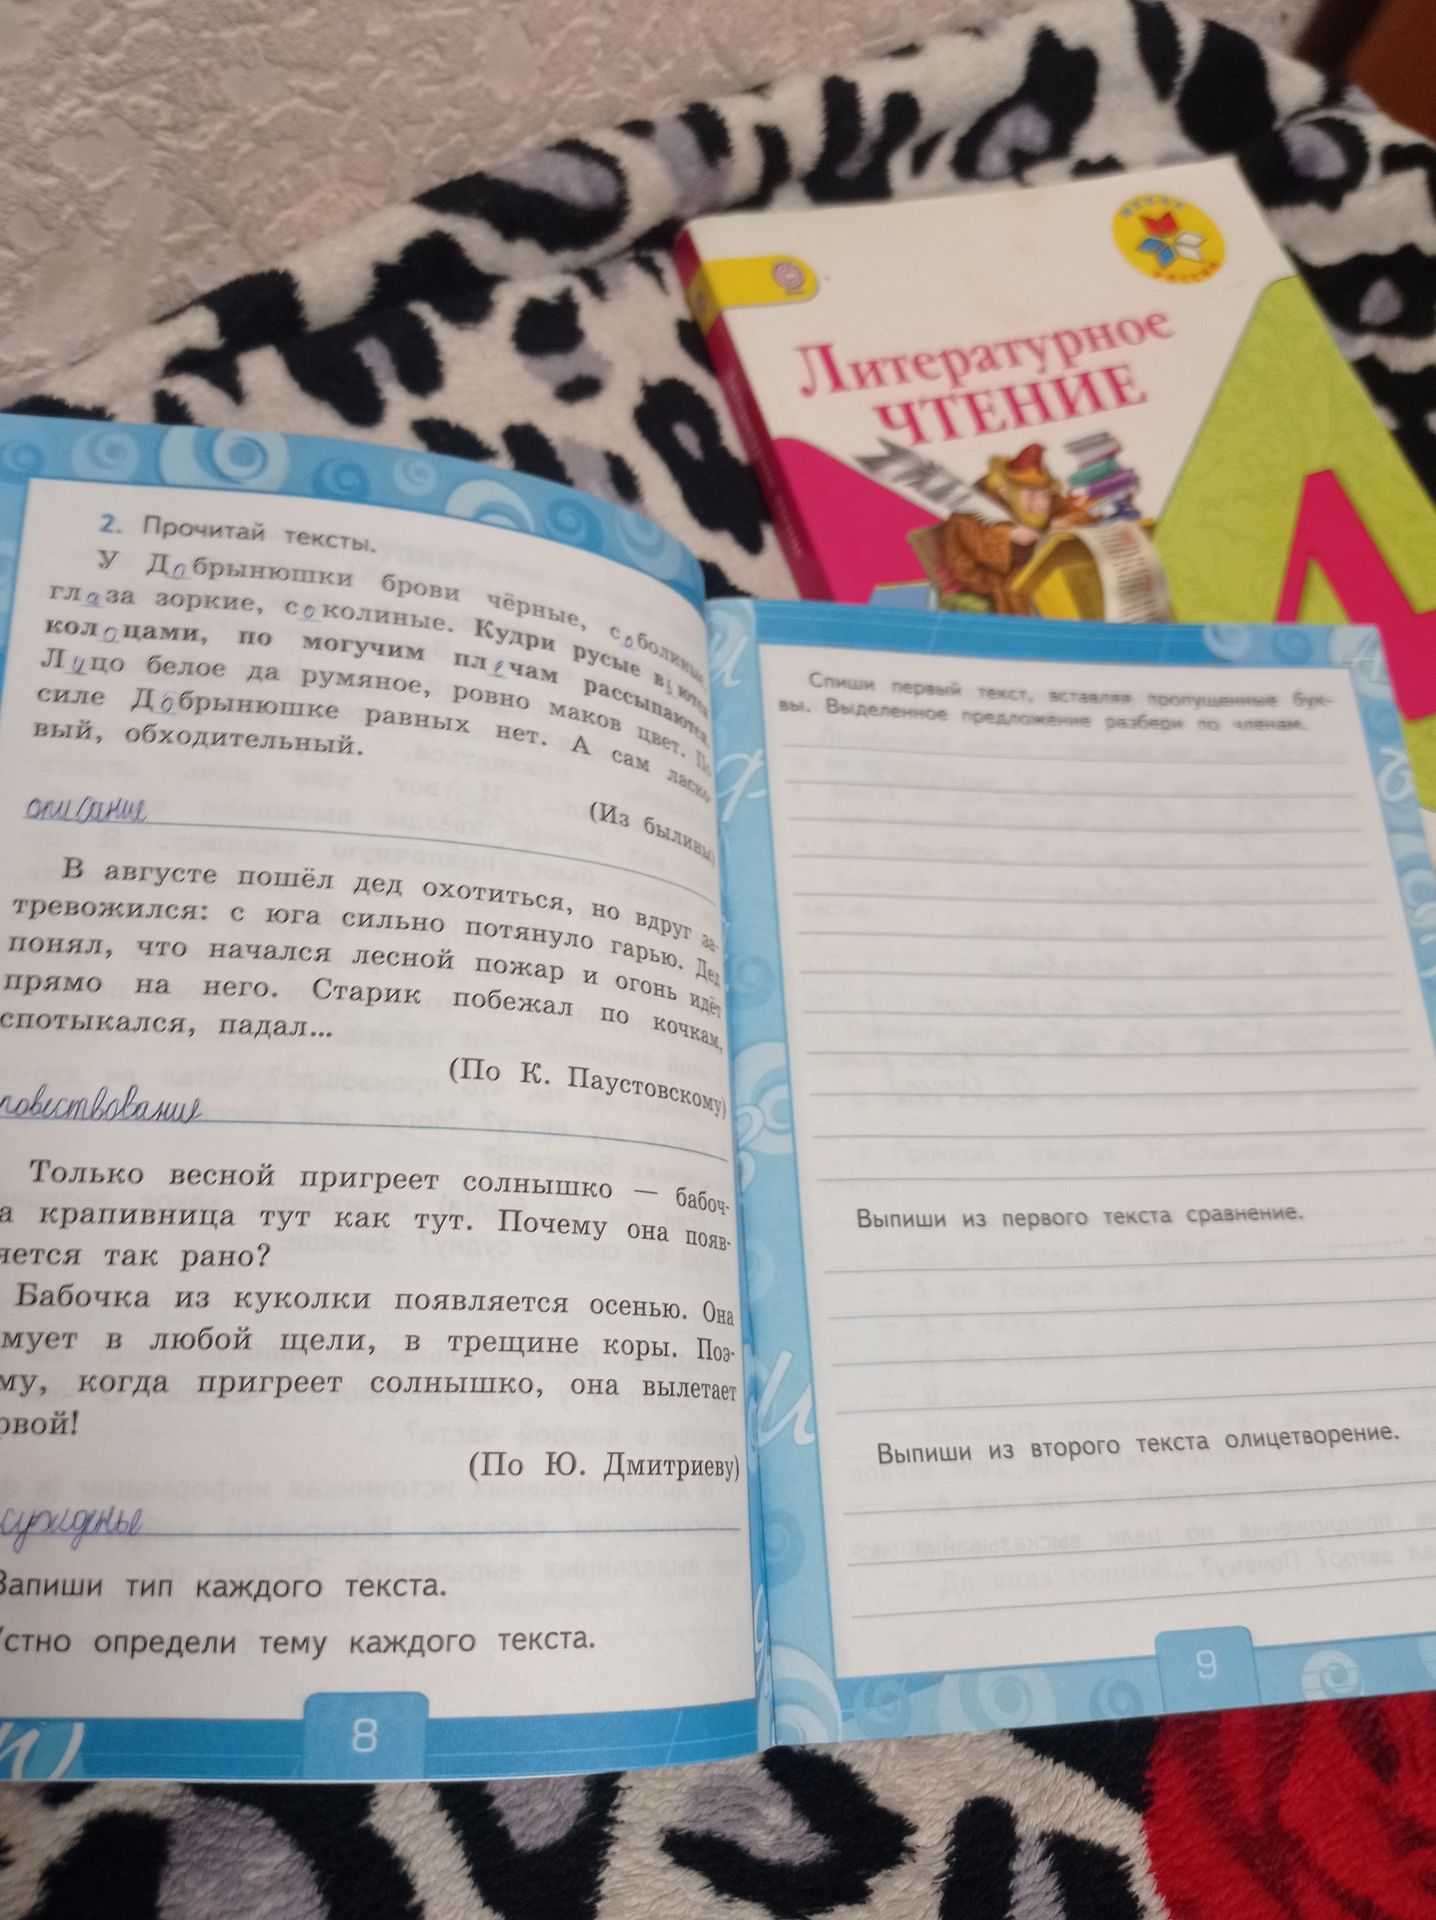 Литературное
ЧТЕНИЕ
2. Прочитай тексты.
У Добрынюшки брови чёрные, соболиные,
глаза зоркие, соколиные. Кудри русые вьются
колоцами, по могучим плечам рассыпаются.
Лицо белое да румяное, ровно маков цвет. По
силе Добрынюшке равных нет. А сам ласко-
вый, обходительный.
(Из былины)
описание
В августе пошёл дед охотиться, но вдруг за-
тревожился: с юга сильно потянуло гарью. Дед
понял, что начался лесной пожар и огонь идёт
прямо на него. Старик побежал по кочкам,
спотыкался, падал...
(По К. Паустовскому)
повествование
Только весной пригреет солнышко — бабоч-
а крапивница тут как тут. Почему она появ-
яется так рано?
Бабочка из куколки появляется осенью. Она
мует в любой щели, в трещине коры. Поэ-
му, когда пригреет солнышко, она вылетает
рвой!
(По Ю. Дмитриеву)
Запиши тип каждого текста.
Устно определи тему каждого текста.
8
Спиши первый текст, вставляя пропущенные бук-
вы. Выделенное предложение разбери по членам.
Выпиши из первого текста сравнение.
Выпиши из второго текста олицетворение.
9